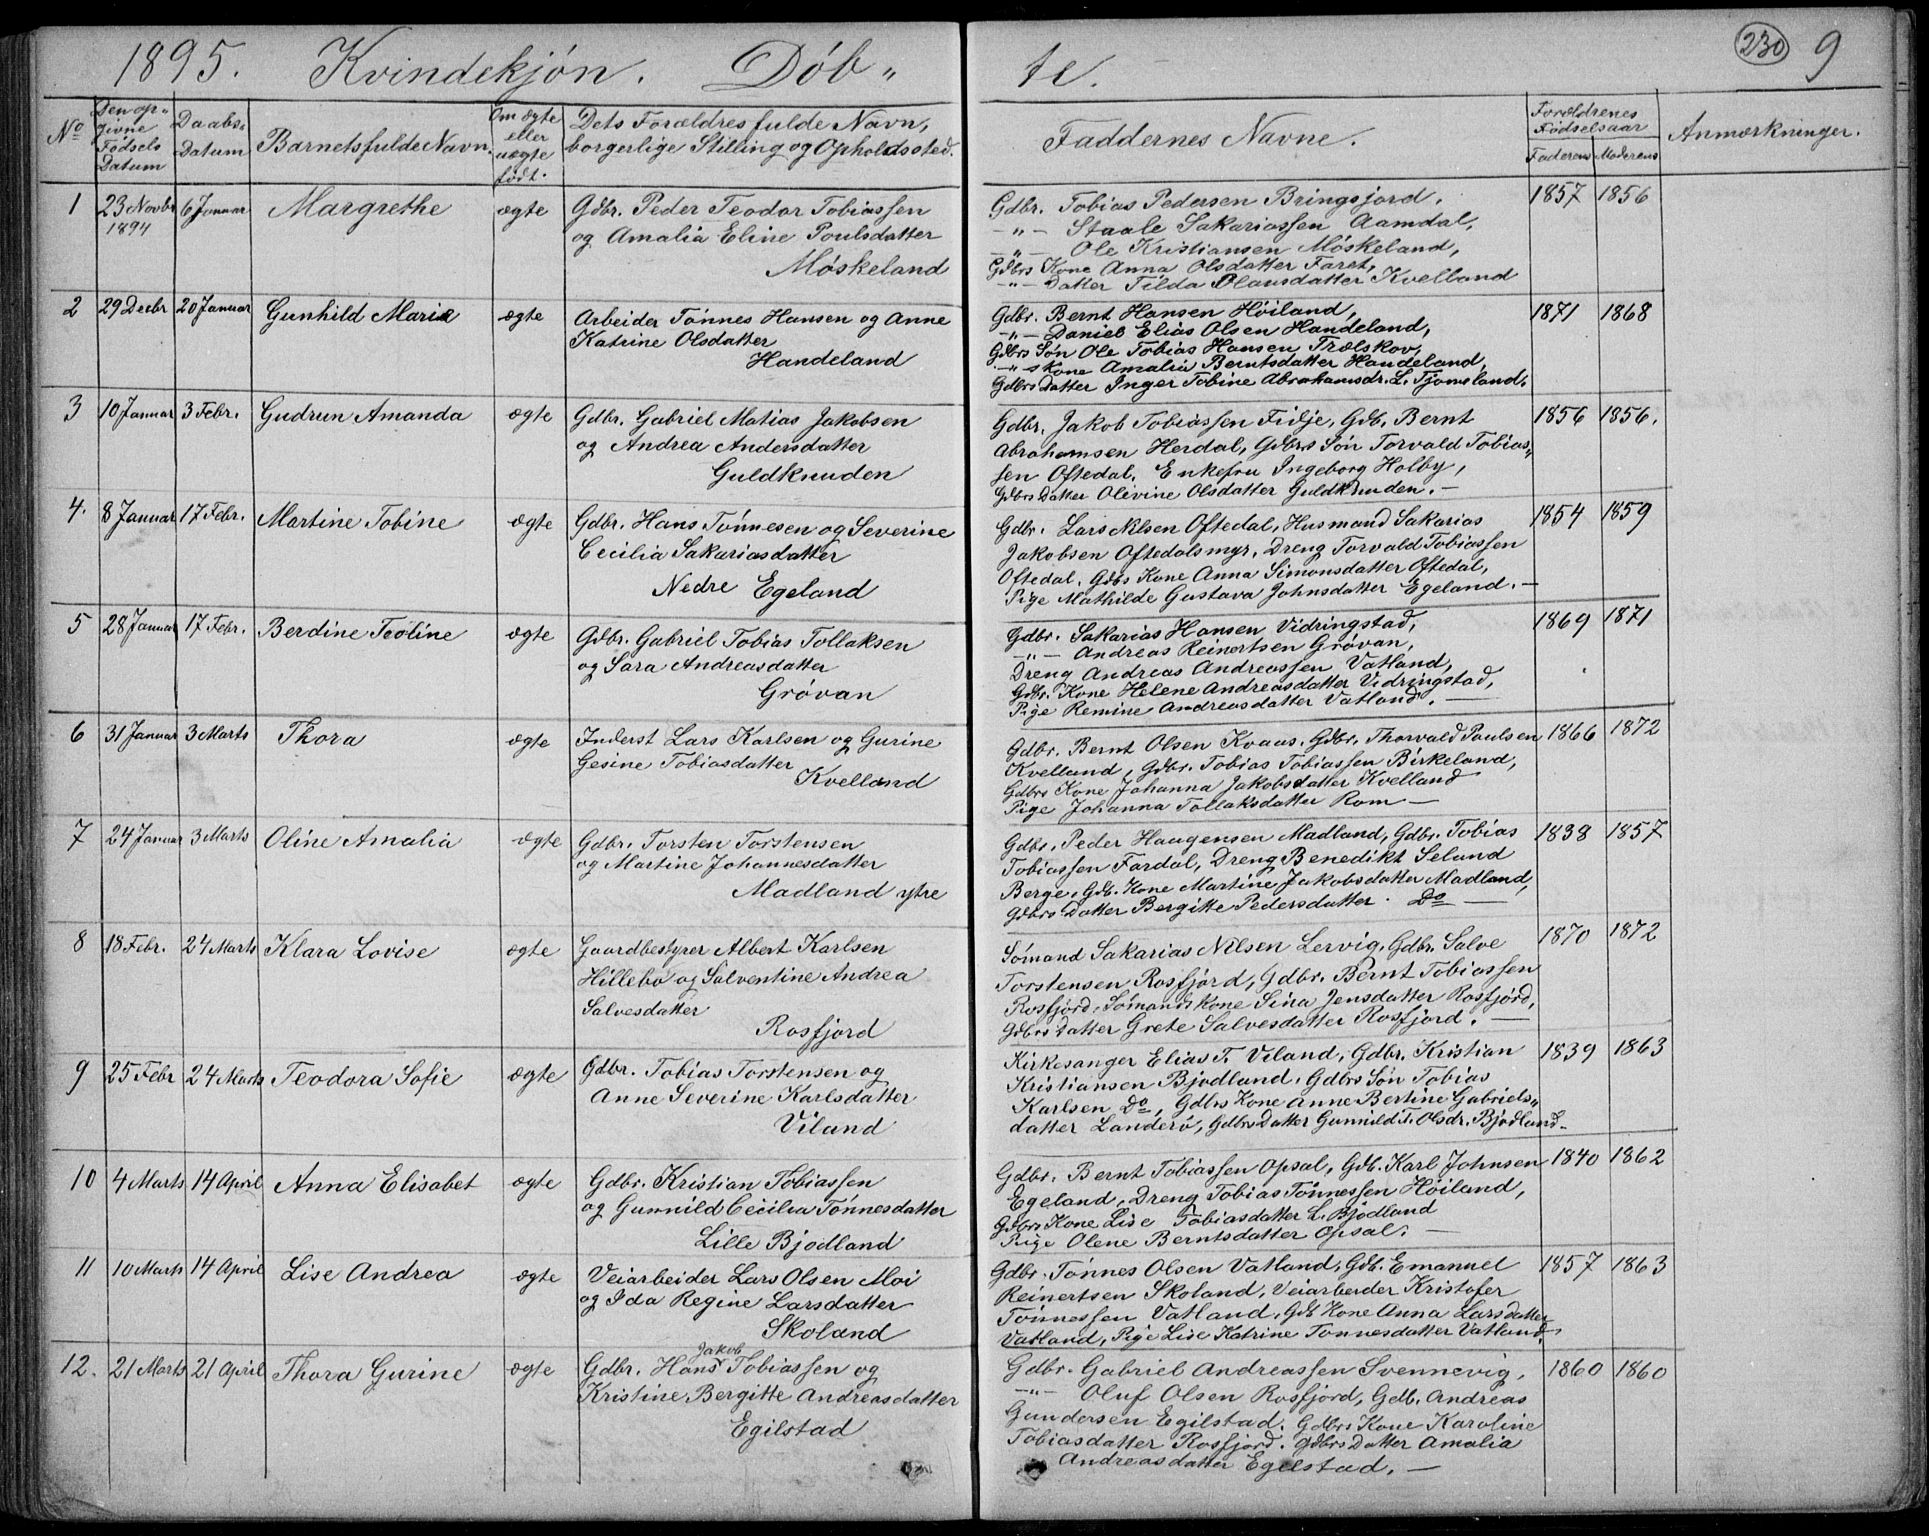 1895. Kvindekjön. Döb„ te. 230 9
No Den op„givne Fødsels Datum Daabs„ Datum Barnets fulde Navn. Om ægte eller uægte født. Dets Forældres fulde Navn, borgerlige Stilling og Opholdssted. Faddernes Navne. Forældrenes Fødselsaar Faderens Moderens Anmærkninger.
1 23 Novbr 1894 6 Januar Margrethe ægte
Gdbr. Peder Teodor Tobiassen
og Amalia Eline Poulsdatter
Møskeland
Gdbr. Tobias Pedersen Bringsjord,
-„- Staale Sakariassen Aamdal,
-„- Ole Kristiansen Møskeland,
Gdbrs Kone Anna Olsdatter Faret,
-„- Datter Tilda Olausdatter Kvelland
1857 1856
2 29 Decbr 20 Januar Gunhild Marie ægte
Arbeider Tönnes Hansen og Anne
Katrine Olsdatter
Handeland
Gdbr. Bernt Hansen Höiland,
-„- Daniel Elias Olsen Handeland,
Gdbrs Søn Ole Tobias Hansen Trælskov,
-„- s Kone Amalia Berntsdatter Handeland,
Gdbrs Datter Inger Tobine Abrahamsdr. L. Tjomsland.
1871 1868
3 10 Januar 3 Febr. Gudrun Amanda ægte
Gdbr. Gabriel Matias Jakobsen
og Andrea Andersdatter
Guldknuden
Gdbr. Jakob Tobiassen Fidje, Gdb. Bernt
Abrahamsen Herdal, Gdbrs Søn Torvald Tobias„
sen Oftedal, Enkefru Ingeborg Holby,
Gdbrs Datter Olivine Olsdatter Guldknuden. —
1856 1856.
4. 8 Januar 17 Febr. Martine Tobine ægte
Gdbr. Hans Tönnesen og Severine
Cecilia Sakariasdatter
Nedre Egeland
Gdbr. Lars Nilsen Oftedal, Husmand Sakarias
Jakobsen Oftedalsmyr, Dreng Torvald Tobiassen
Oftedal, Gdbs Kone Anna Simonsdatter Oftedal,
Pige Mathilde Gustava Johnsdatter Egeland. —
1854 1859
5 28 Januar 17 Febr. Berdine Teoline ægte
Gdbr. Gabriel Tobias Tollaksen
og Sara Andreasdatter
Grövan
Gdbr. Sakarias Hansen Vidringstad,
-„- Andreas Reinertsen Grövan,
Dreng Andreas Andreassen Vatland,
Gdbr. Kone Helene Andreasdatter Vidringstad,
Pige Remine Andreasdatter Vatland. —
1869 1871
6 31 Januar 3 Marts Thora ægte
Inderst Lars Karlsen og Gurine
Gesine Tobiasdatter
Kvelland
Gdbr. Bernt Olsen Kvaas. Gdbr. Thorvald Paulsen
Kvelland, Gdbr. Tobias Tobiassen Birkeland,
Gdbrs Kone Johanna Jakobsdatter Kvelland
Pige Johanna Tollaksdatter Rom —
1866 1872
7 24 Januar 3 Marts Oline Amalia ægte
Gdbr. Torsten Torstensen
og Martine Johannesdatter
Madland ytre
Gdbr. Peder Haagensen Madland, Gdbr. Tobias
Tobiassen Fardal, Dreng Benedikt Seland
Berge, Gdb. Kone Martine Jakobsdatter Madland,
Gdbrs Datter Bergitte Pedersdatter. Do —
1838 1857
8 18 Febr. 24 Marts Klara Lovise ægte
Gaardbestyrer Albert Karlsen
Hillebo og Salventine Andrea
Salvesdatter
Rosfjord
Sömand Sakarias Nilsen Lervig, Gdbr. Salve
Torstensen Rosfjord, Gdbr. Bernt Tobiassen
Rosfjord, Sömands Kone Sina Jensdatter Rosfjord,
Gdbrs Datter Grete Salvesdatter Rosfjord. —
1870 1872
9 25 Febr 24 Marts Teodora Sofie ægte
Gdbr. Tobias Torstensen og
Anne Severine Karlsdatter
Viland
Kirkesanger Elias T. Viland, Gdbr. Kristian
Kristiansen Bjodland, Gdbrs Søn Tobias
Karlsen Do, Gdbrs Kone Anne Bertine Gabriels„
datter Landerö, Gdbrs Datter Gunnild T. Olsdr. Bjodland.
1839 1863
10 4 Marts 14 April Anna Elisabet ægte
Gdbr. Kristian Tobiassen
og Gunnild Cecilia Tönnesdatter
Lille Bjodland
Gdbr. Bernt Tobiassen Opsal, Gdb. Karl Johnsen
Egeland, Dreng Tobias Tönnessen Höiland,
Gdbrs Kone Lise Tobiasdatter L. Bjodland
Pige Olene Berntsdatter Opsal. —
1840 1862
11 10 Marts 14 April Lise Andrea ægte
Veiarbeider Lars Olsen Moi
og Ida Regine Larsdatter
Skoland
Gdbr. Tönnes Olsen Vatland, Gdb. Emanuel
Reinertsen Skoland, Veiarbeider Kristofer
Tönnessen Vatland, Gdb Kone Anna Larsdatter
Vatland, Pige Lise Katrine Tonnesdatter Vatland.
1857 1863
12. 21 Marts 21 April Thora Gurine ægte
Jakob
Gdbr. Hans Tobiassen og
Kristine Bergitte Andreasdatter
Egilstad
Gdbr. Gabriel Andreassen Svennevig,
-„- Oluf Olsen Rosfjord, Gdb. Andreas
Gundersen Egilstad. Gdbrs Kone Karoline
Tobiasdatter Rosfjord. Gdbrs Datter Amalia
Andreasdatter Egilstad. —
1860 1860